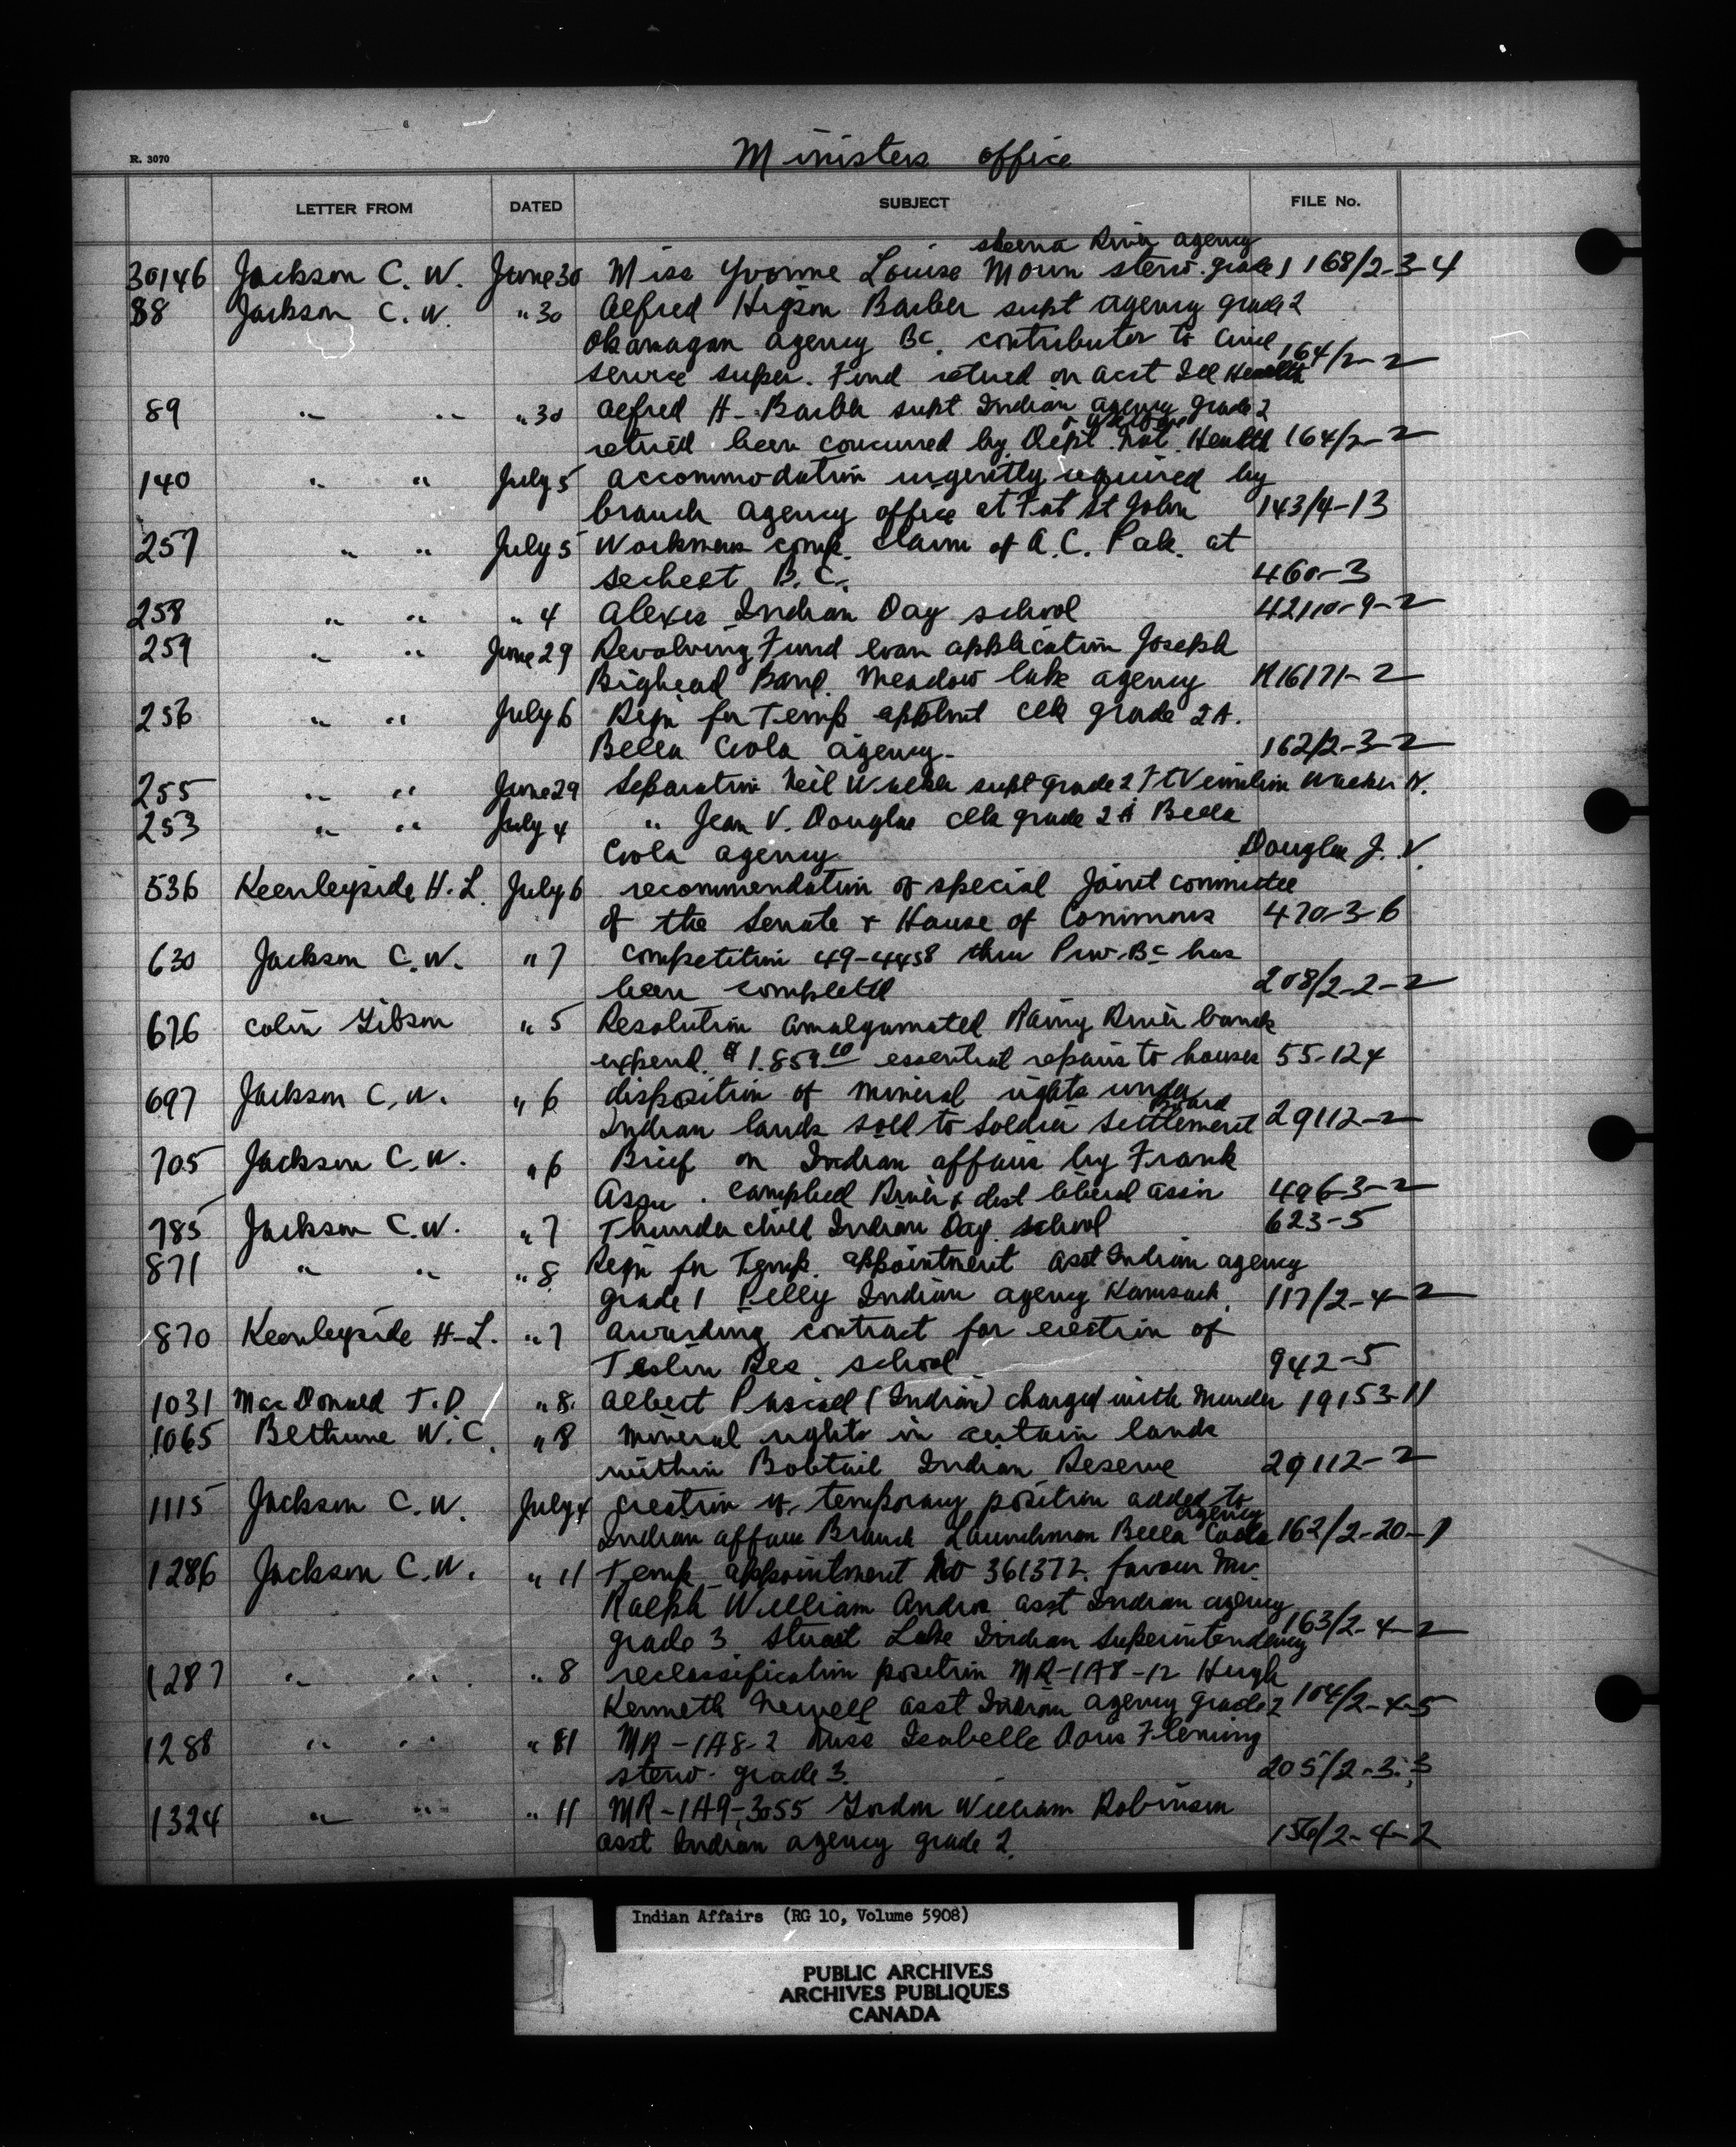 R. 3070
Ministers office
LETTER FROM DATED SUBJECT FILE No.
skeena River agency
30146 Jackson C. W. June 30 Miss Yvonne Louise Morin steno. grade 1 168/2-3-4
88 Jackson C. W. " 30 Alfred Higson Barber supt agency grade 2
Okanagan agency BC. contributor to Civil
service super. Fund retired on acct Ill Health 164/2-2
89 " " " 30 Alfred H. Barber supt Indian agency grade 2
retired been concurred by Dept. Nat. Health 164/2-2
140 " " July 5 accommodation urgently required by
branch agency office at Fort St John 143/4-13
257 " " July 5 Workmens comp. claim of A. C. at
sechelt B. C. 460-3
258 " " " 4 Alexis Indian Day school 42110-9-2
259 " " June 29 Revolving Fund loan application Joseph
Bighead Band. Meadow lake agency R16171-2
256 " " July 6 Reqn for Temp apptmt clk grade 2A.
Bella Coola agency. 162/2-3-2
255 " " June 29 Separation Neil Walker supt grade 2 Ft Vermilion Walker N.
253 " " July 4 " Jean V. Douglas clk grade 2 A Bella
Coola agency Douglas J. V.
536 Keenleyside H. L. July 6 recommendation of special Joint committee
of the Senate & House of Commons 470-3-6
630 Jackson C. W. " 7 competition 49-4458 thru Prov. BC has
been completed 208/2-2-2
676 Colin Gibson " 5 Resolution amalgamated Rainy River bands
expend. $ 1.859.00 essential repairs to houses 55-124
697 Jackson C. W. " 6 disposition of mineral rights under
Board
Indian lands sold to Soldier Settlement 29112-2
705 Jackson C. W. " 6 Brief on Indian affairs by Frank
Assu. Campbell River & dist liberal assn 496-3-2
785 Jackson C. W. " 7 Thunderchild Indian Day. school 623-5
871 " " " 8 Reqn for Temp. appointment asst Indian agency
grade 1 Pelly Indian agency Kamsack. 117/2-4-2
870 Keenleyside H-L. " 7 awarding contract for erection of
Teslin Res. school 942-5
1031 MacDonald T. D. " 8. Albert Pascal (Indian) charged with Murder 19153-11
1065 Bethune W. C. " 8 mineral rights in certain lands
within Bobtail Indian Reserve 29112-2
1115 Jackson C. W. July 4 creation of temporary position added to
agency
Indian affairs Branch Launchman Bella Coola 162/2-20-1
1286 Jackson C. W. " 11 Temp appointment No 361372. favour Mr.
Ralph William asst Indian agency
grade 3 Stuart Lake Indian Superintendency 163/2-4-2
1287 " " " 8 reclassification position MR-1A8-12 Hugh
Kenneth Newell asst Indian agency grade 2 104/2-4-5
1288 " " " 81 MR-1A8-2 Miss Isabelle Doris Fleming
steno. grade 3. 205/2-3-3
1324 " " " 11 MR-1A9-3055 Gordon William Robinson
asst Indian agency grade 2. 156/2-4-2
Indian Affairs (RG 10, Volume 5908)
PUBLIC ARCHIVES
ARCHIVES PUBLIQUES
CANADA